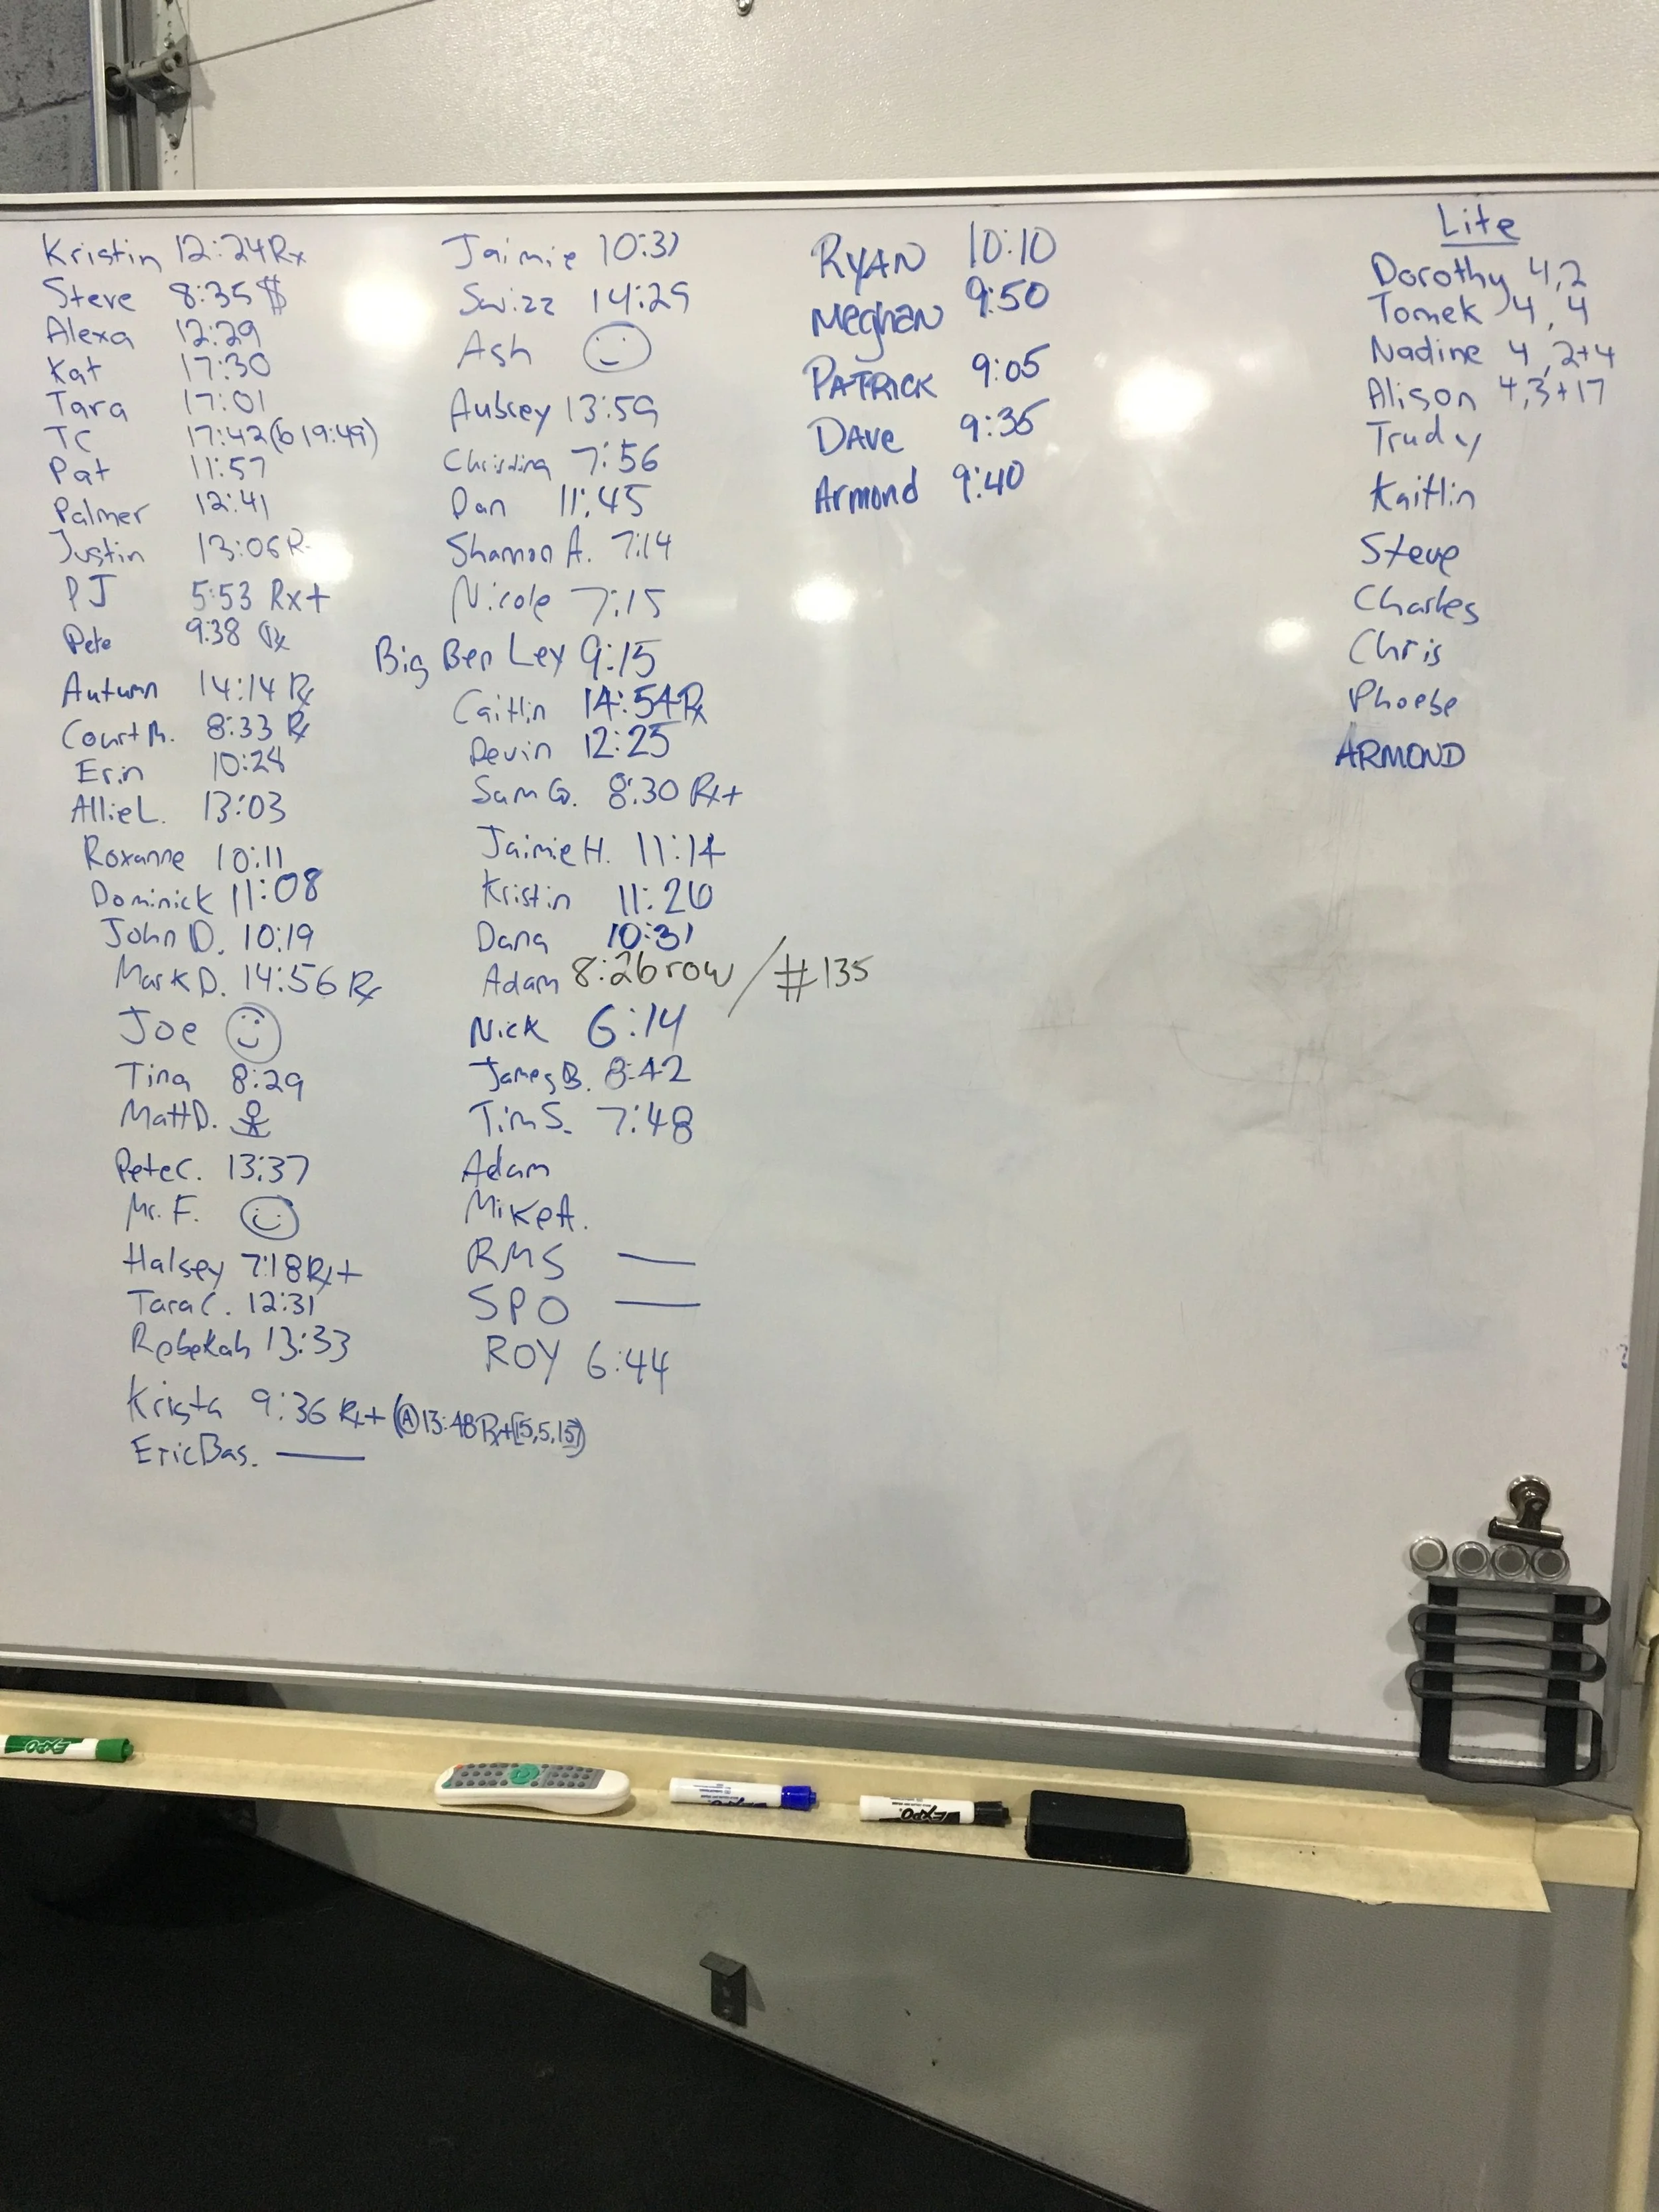 Kristin 12:24 Rx
Steve 8:35 $
Alexa 12:29
Kat 17:30
Tara 17:01
TC 17:42 (b 19:49)
Pat 11:57
Palmer 12:41
Justin 13:06 R
PJ 5:53 Rx+
Pete 9:38 Rx
Autumn 14:14 Rx
Court M. 8:33 Rx
Erin 10:28
Allie L. 13:03
Roxanne 10:11
Dominick 11:08
John D. 10:19
Mark D. 14:56 Rx
Joe
Tina 8:29
Matt D.
Pete C. 13:37
Mr. F.
Halsey 7:18 Rx+
Tara C. 12:31
Rebekah 13:33
Krista 9:36 Rx+ (A 13:48 Rx+[15,5,15])
Eric Bas. —
Jaimie 10:31
Swizz 14:29
Ash
Aubrey 13:59
Christina 7:56
Dan 11:45
Shannon A. 7:14
Nicole 7:15
Big Ben Ley 9:15
Caitlin 14:54 Rx
Devin 12:25
Sam G. 8:30 Rx+
Jaimie H. 11:14
Kristin 11:26
Dana 10:31
Adam 8:26 row / #135
Nick 6:14
James B. 8:42
Tim S. 7:48
Adam
Mike A.
RMS —
SPO —
ROY 6:44
RYAN 10:10
Meghan 9:50
PATRICK 9:05
DAVe 9:35
Armond 9:40
Lite
Dorothy 4,2
Tomek 4,4
Nadine 4,2+4
Alison 4,3+17
Trudy
Kaitlin
Steve
Charles
Chris
Phoebe
ARMOND
EXPO
EXPO